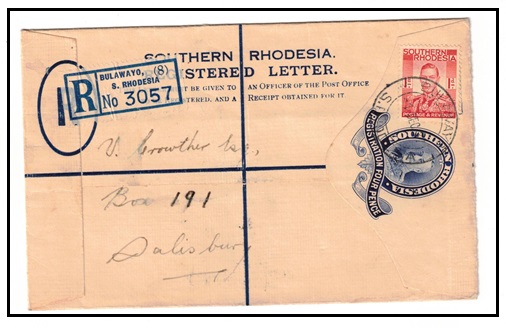 SOUTHERN RHODESIA.
REGISTERED LETTER.
BE GIVEN TO AN OFFICER OF THE POST OFFICE
AND A RECEIPT OBTAINED FOR IT.
BULAWAYO, (8)
S. RHODESIA
R No 3057
SOUTHERN
RHODESIA
1D 1D
POSTAGE & REVENUE
SOUTHERN RHODESIA
REGISTRATION FOUR PENCE
V. Crowther Esq.,
Box 191
Salisbury